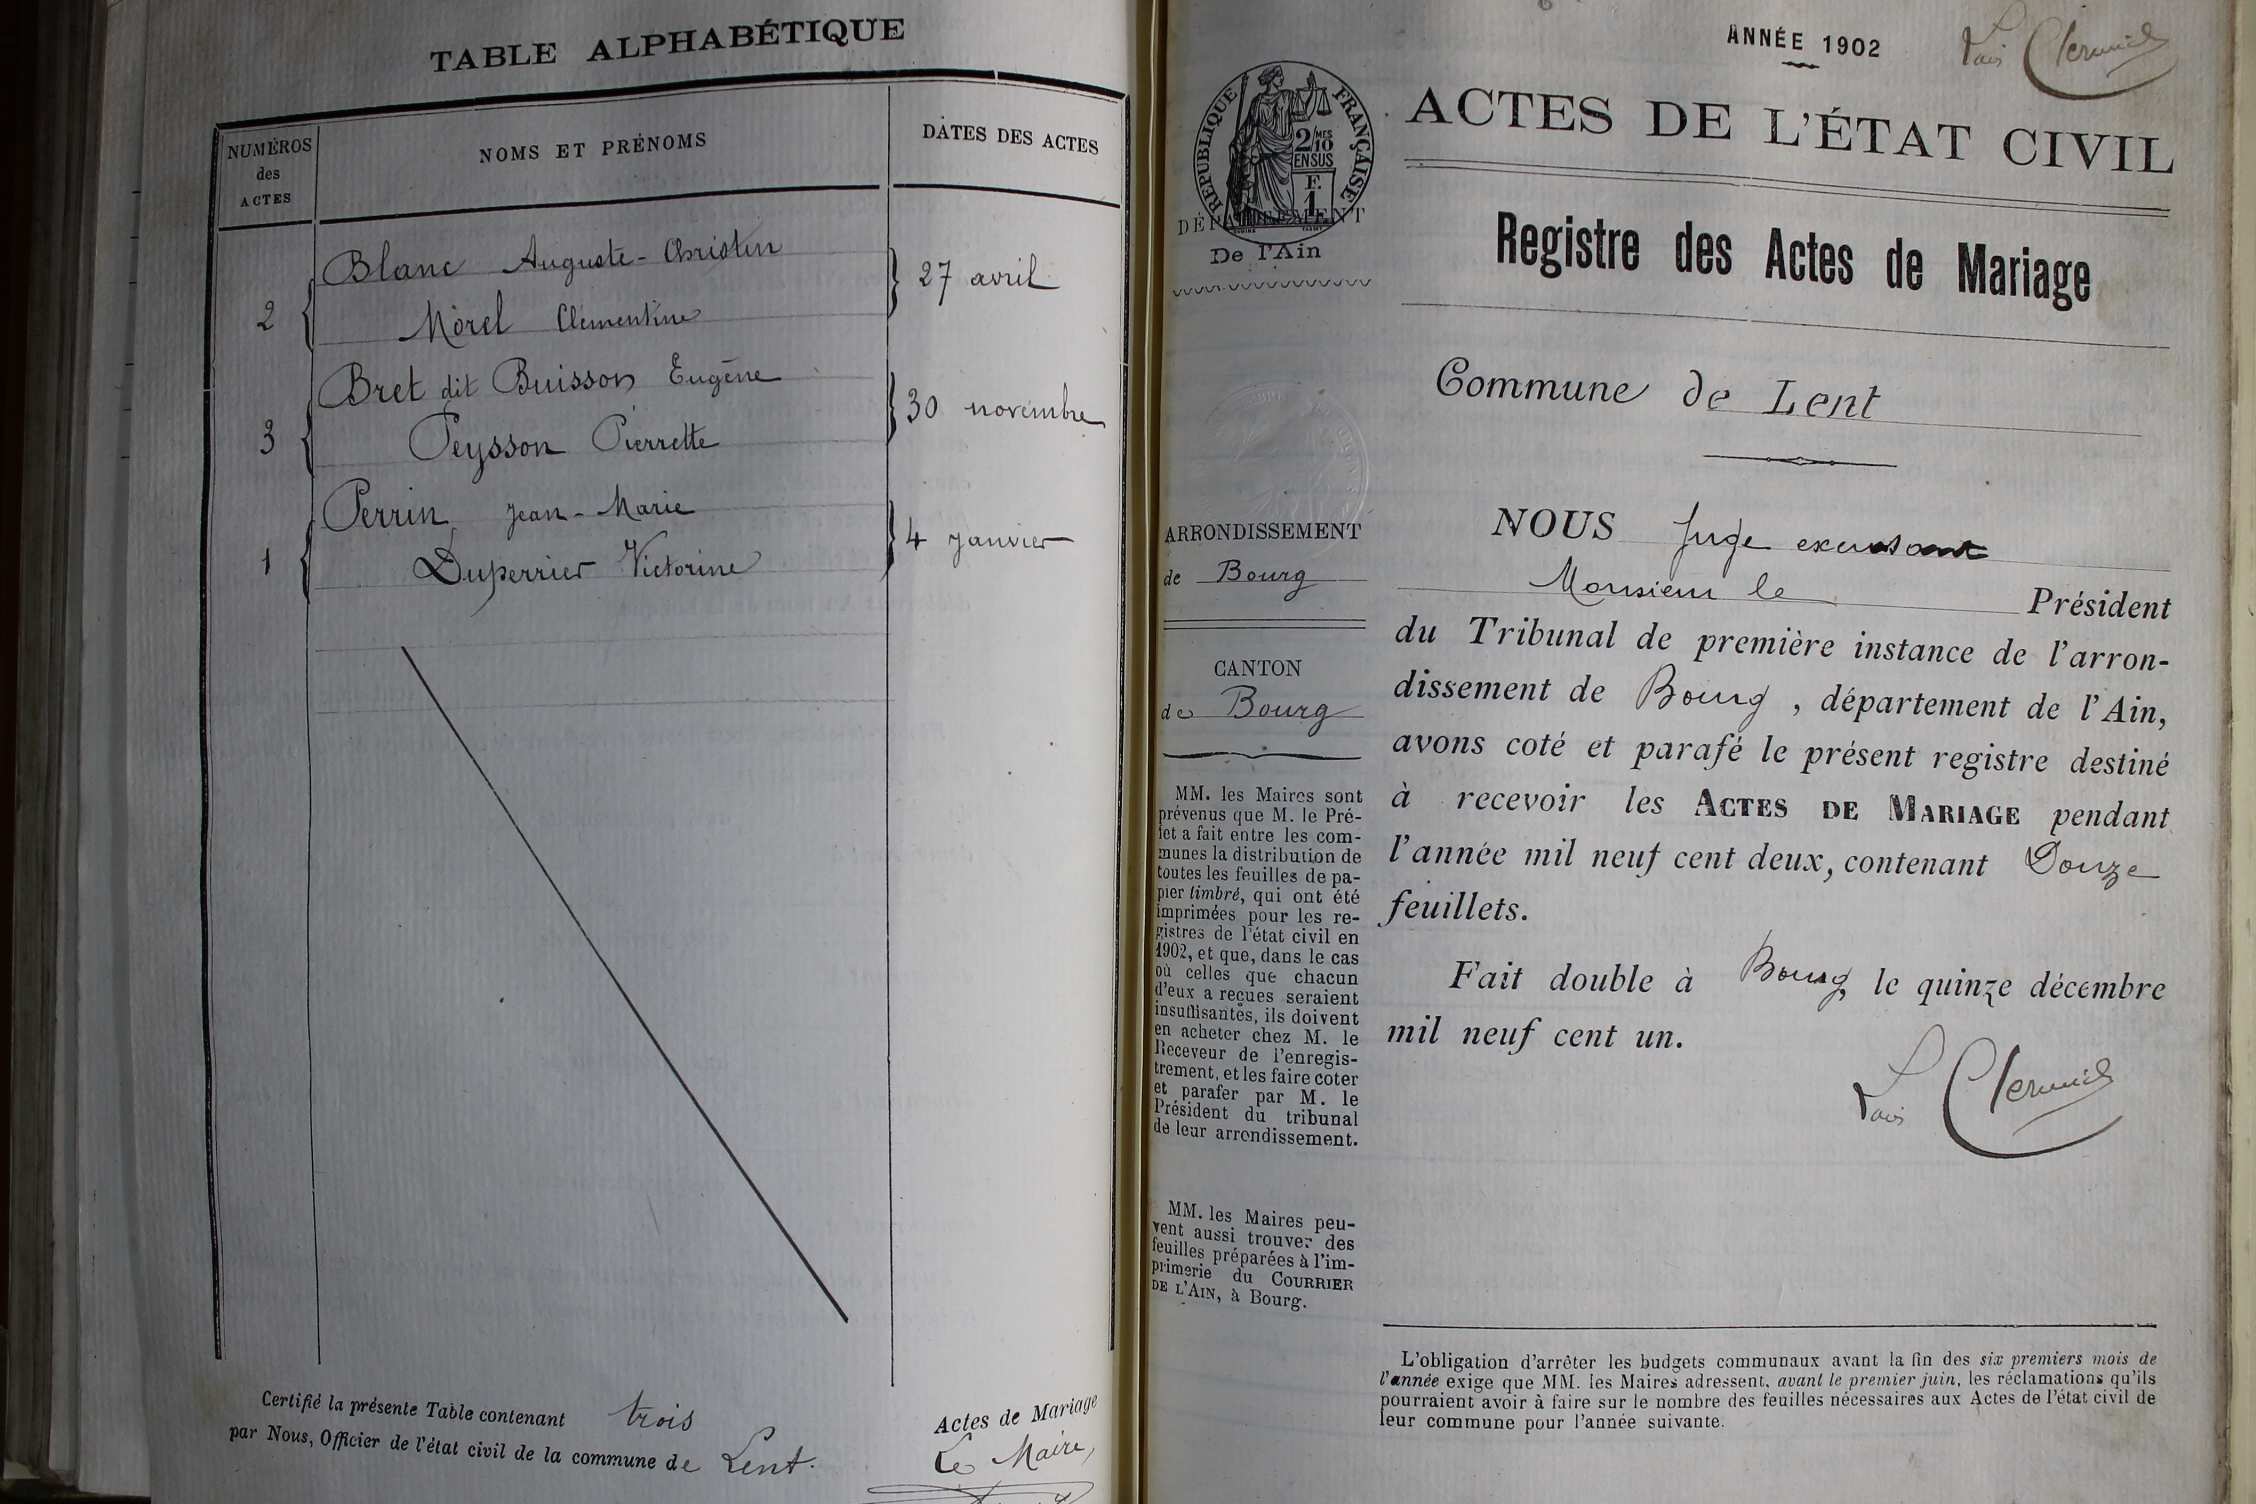 TABLE ALPHABÉTIQUE
NUMÉROS
des
ACTES
NOMS ET PRÉNOMS
DATES DES ACTES
Blanc Auguste-Christin
2
27 avril
Morel Clémentine
Bret dit Buisson Eugène
3
30 novembre
Peysson Pierrette
Perrin Jean-Marie
1
4 janvier
Duperrier Victorine
Certifié la présente Table contenant trois Actes de Mariage
par Nous, Officier de l'état civil de la commune de Lent.
Le Maire,
ANNÉE 1902
RÉPUBLIQUE FRANÇAISE
2/10
MES
EN SUS
F.
1
DÉPARTEMENT
De l'Ain
ACTES DE L'ÉTAT CIVIL
Registre des Actes de Mariage
Commune de Lent
ARRONDISSEMENT
de Bourg
CANTON
de Bourg
MM. les Maires sont
prévenus que M. le Pré-
fet a fait entre les com-
munes la distribution de
toutes les feuilles de pa-
pier timbré, qui ont été
imprimées pour les re-
gistres de l'état civil en
1902, et que, dans le cas
où celles que chacun
d'eux a reçues seraient
insuffisantes, ils doivent
en acheter chez M. le
Receveur de l'enregis-
trement, et les faire coter
et parafer par M. le
Président du tribunal
de leur arrondissement.
MM. les Maires peu-
vent aussi trouver des
feuilles préparées à l'im-
primerie du COURRIER
DE L'AIN, à Bourg.
NOUS Juge
Monsieur le Président
du Tribunal de première instance de l'arron-
dissement de Bourg, département de l'Ain,
avons coté et parafé le présent registre destiné
à recevoir les ACTES DE MARIAGE pendant
l'année mil neuf cent deux, contenant Douze
feuillets.
Fait double à Bourg, le quinze décembre
mil neuf cent un.
L'obligation d'arrêter les budgets communaux avant la fin des six premiers mois de
l'année exige que MM. les Maires adressent, avant le premier juin, les réclamations qu'ils
pourraient avoir à faire sur le nombre des feuilles nécessaires aux Actes de l'état civil de
leur commune pour l'année suivante.